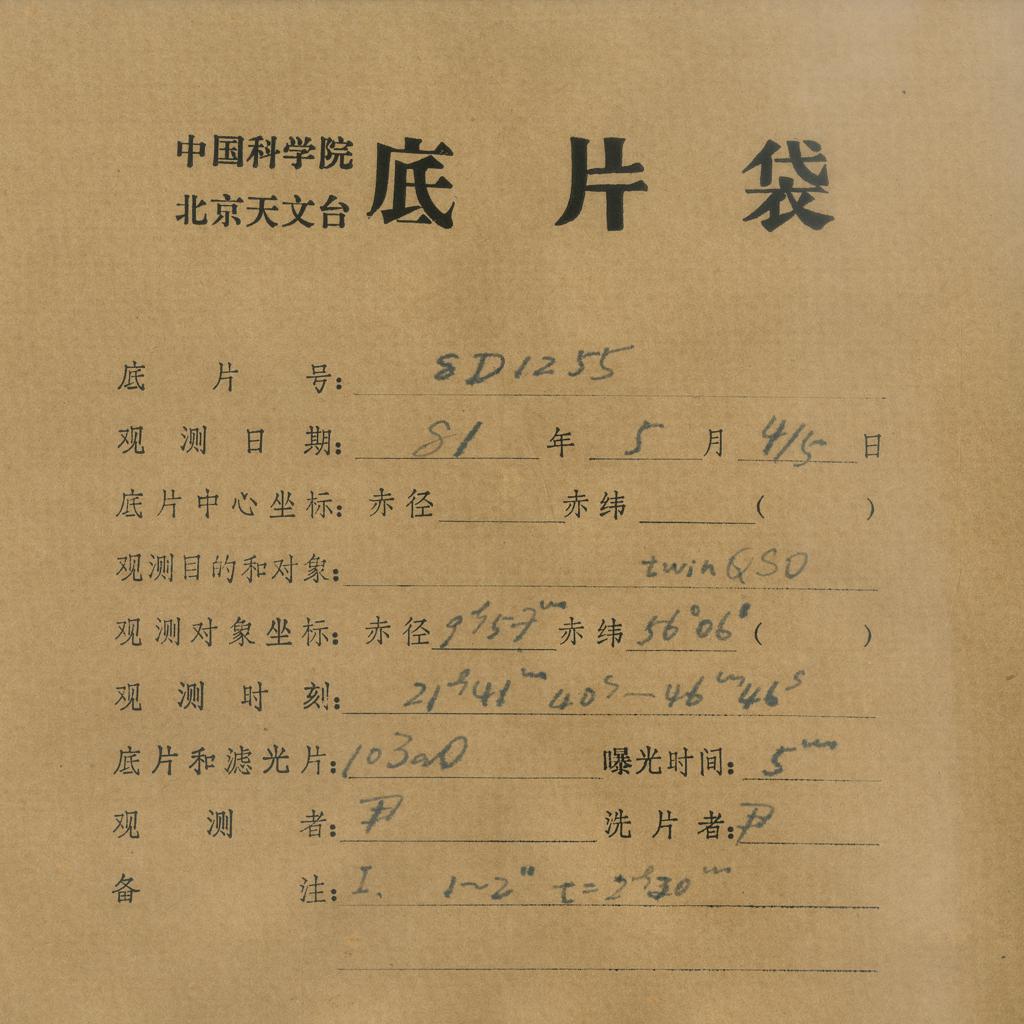 中国科学院
北京天文台 底片袋
底片号： SD1255
观测日期： 81 年 5 月 4/5 日
底片中心坐标：赤径 赤纬 ( )
观测目的和对象： twin QSO
观测对象坐标：赤径 9h57m 赤纬 56°06' ( )
观测时刻： 21h41m40s—46m46s
底片和滤光片： 103aO 曝光时间： 5m
观测者： 尹 洗片者： 尹
备注： I. 1~2" t=2h30m